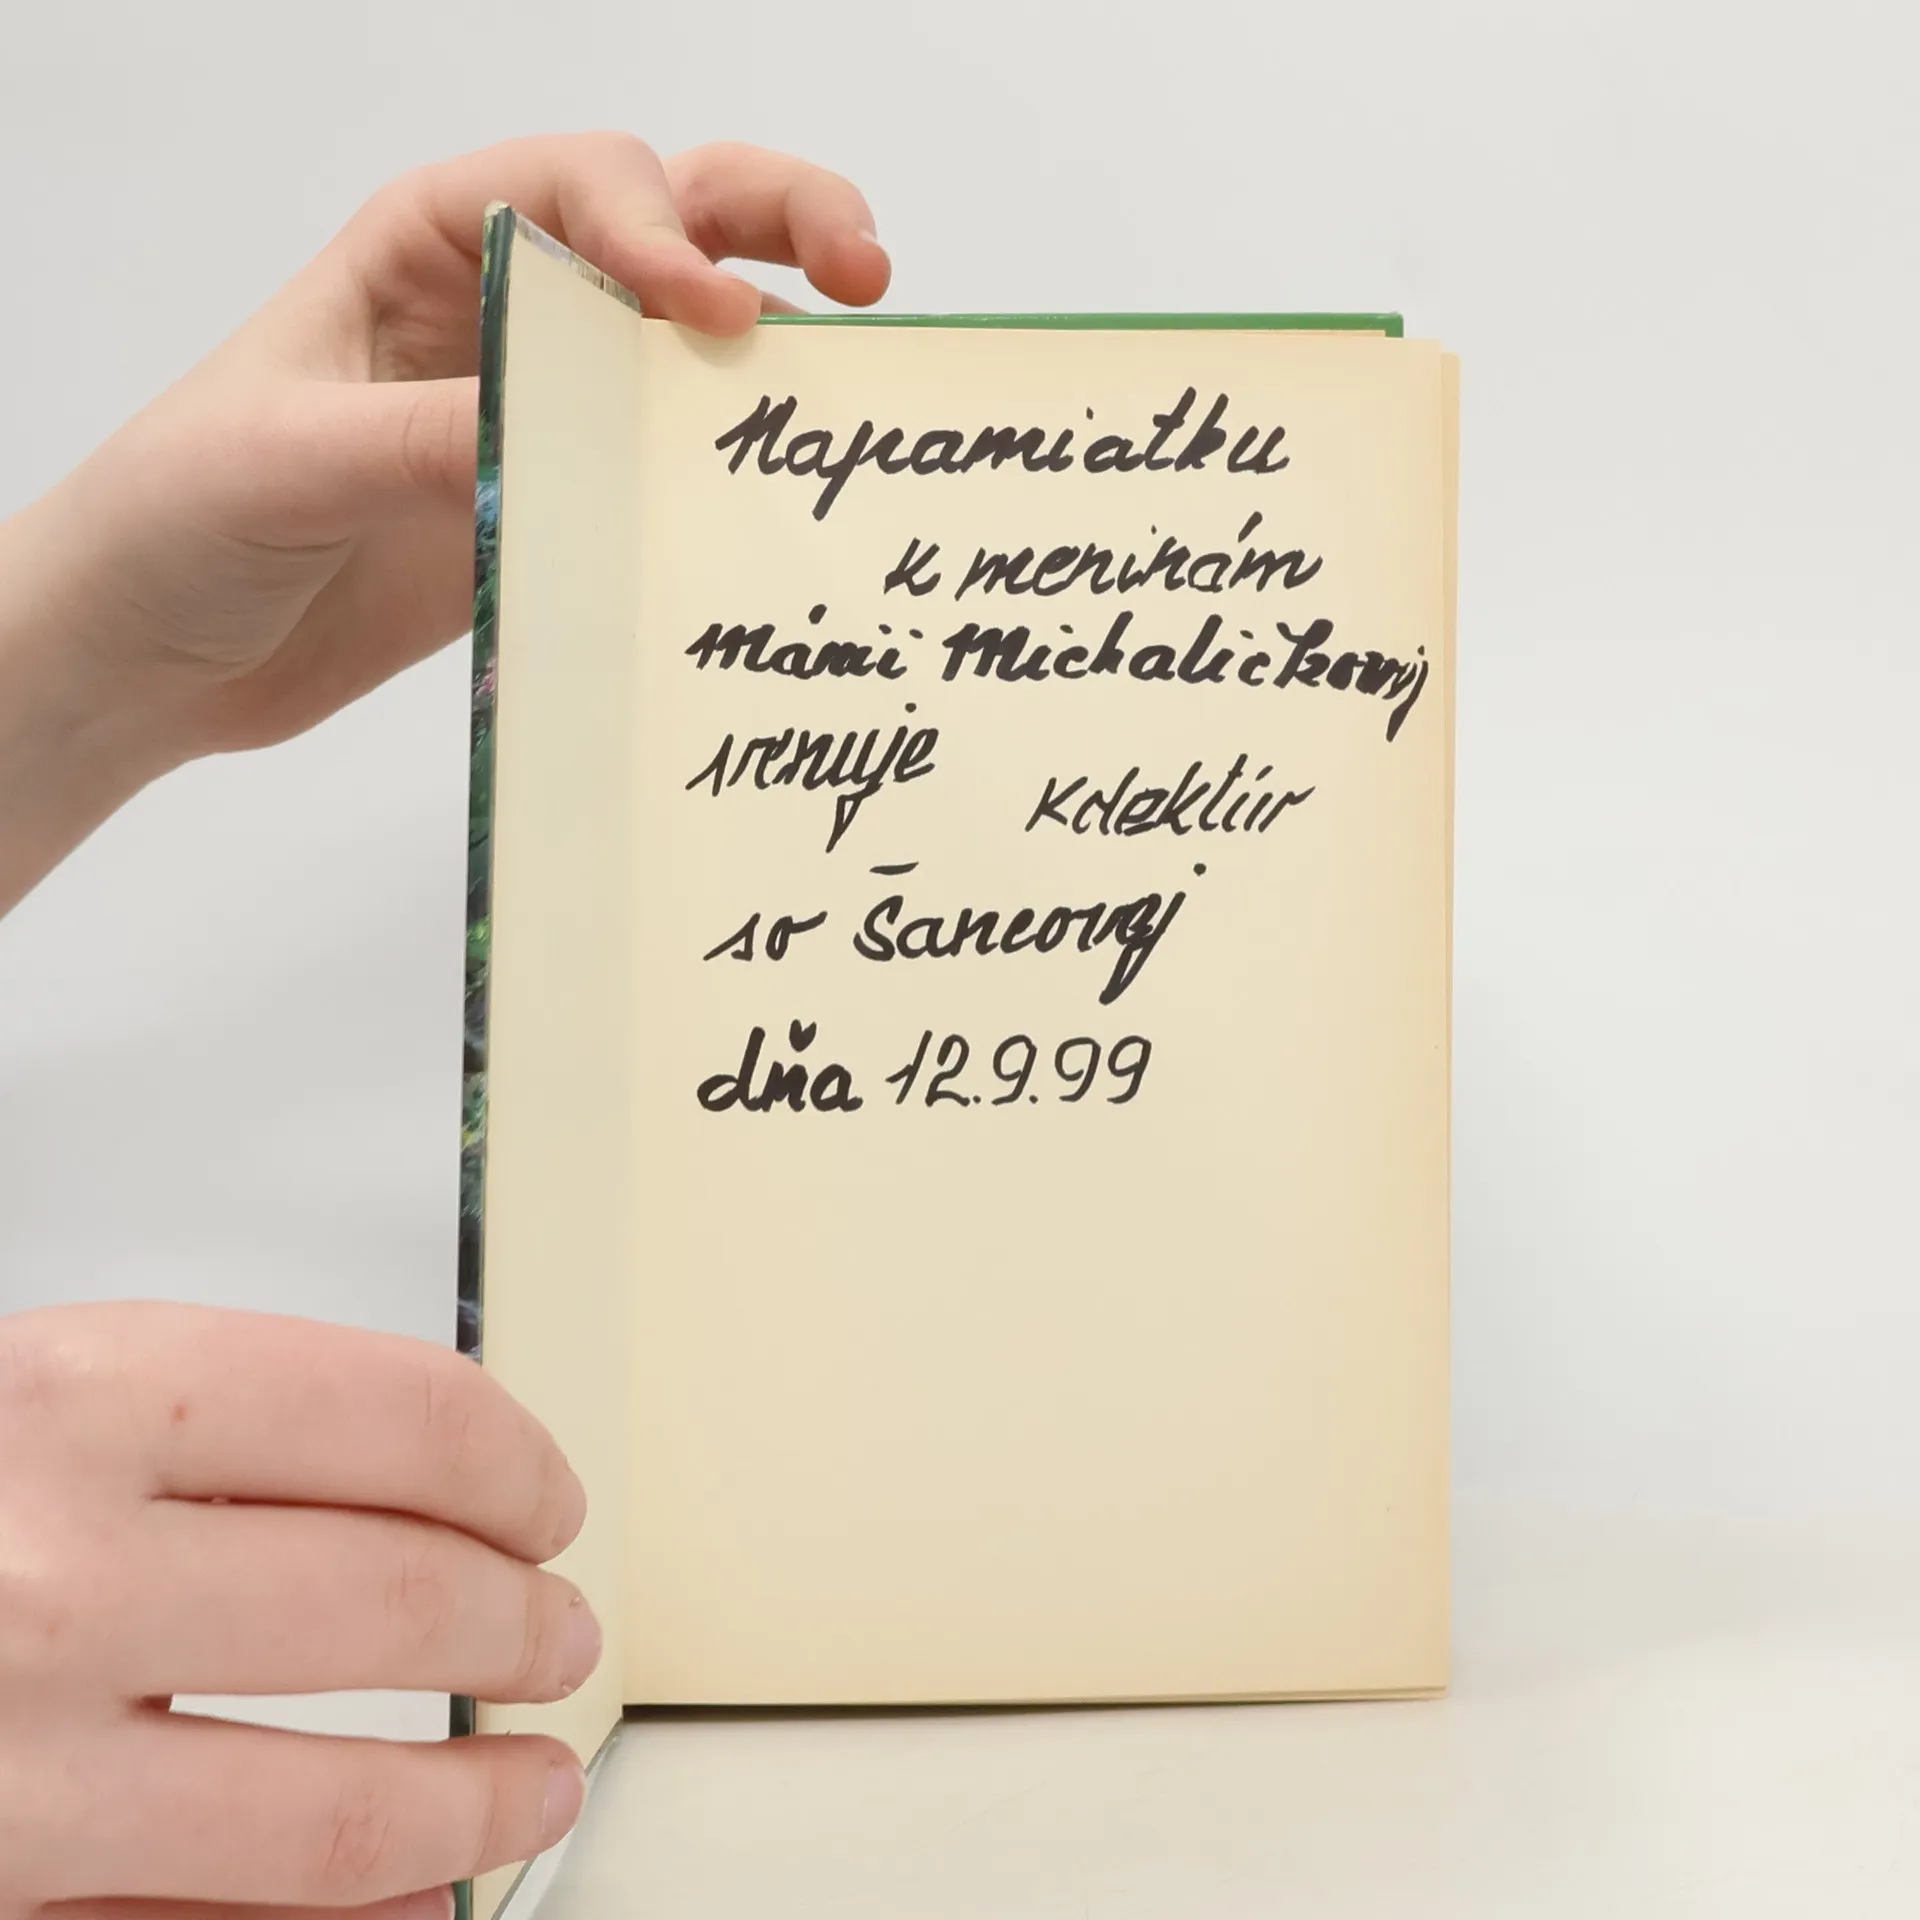 Napamiatku
k meninám
mámii Michaličkovej
venuje
Kolektív
so Šancovej
dňa 12.9.99